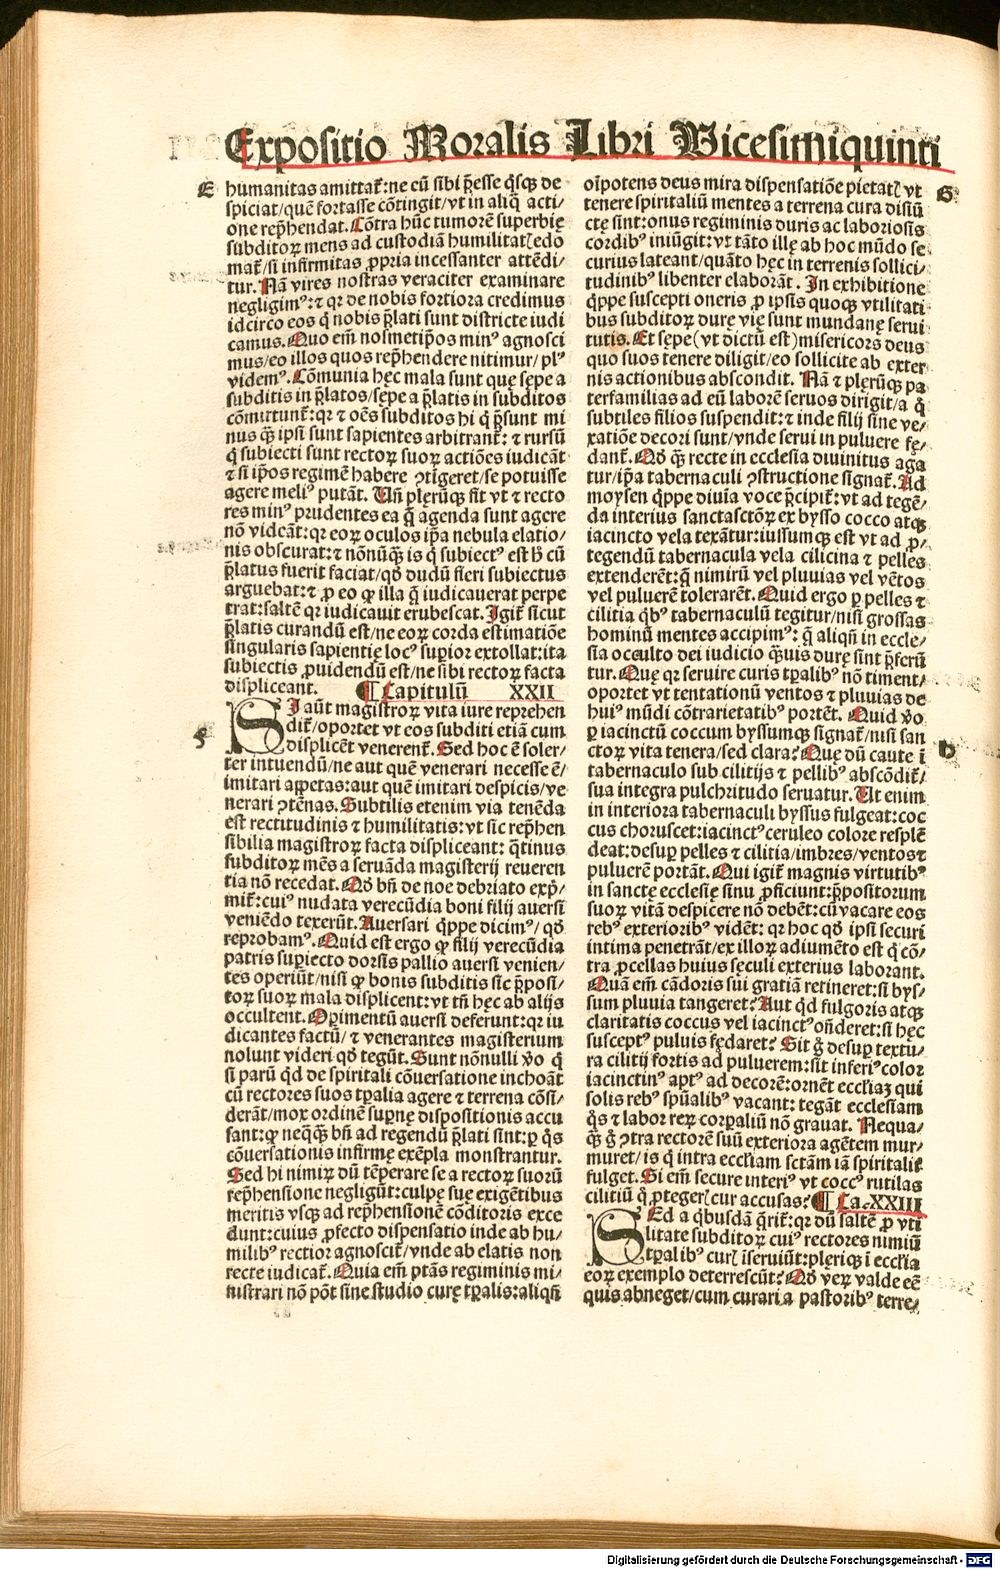 Expositio Moralis Libri Vicesimiquinti
E
humanitas amittat᷑:ne cū sibi p̄esse q̇sqȝ de
spiciat/quē fortasse cōtingit/vt in aliq̄ acti/
one rep̄hendat. Cōtra hūc tumorē superbię
subditoꝝ mens ad custodiā humilitatꝭ edo
mat᷑/si infirmitas ꝓpria incessanter attēdi/
tur. Nā vires nostras veraciter examinare
negligimꝰ:⁊ qꝛ de nobis fortiora credimus
idcirco eos q̇ nobis p̄lati sunt districte iudi
camus. Quo em̄ nosmetip̄os minꝰ agnosci
mus/eo illos quos rep̄hendere nitimur/plꝰ
videmꝰ. Cōmunia hęc mala sunt quę sępe a
subditis in p̄latos/sępe a p̄latis in subditos
cōmittunt᷑:qꝛ ⁊ oēs subditos hi q̇ p̄sunt mi
nus qȝ ipsi sunt sapientes arbitrant᷑: ⁊ rursū
q̇ subiecti sunt rectoꝝ suoꝝ actiōes iudicāt
⁊ si ip̄os regimē habere ꝯtīgeret/se potuisse
agere meliꝰ putāt. Vn̄ plęrūqȝ fit vt ⁊ recto
res minꝰ prudentes ea q̄ agenda sunt agere
nō videāt:qꝛ eoꝝ oculos ip̄a nebula elatio/
nis obscurat:⁊ nōnūqȝ is q̇ subiectꝰ est h̄ cū
p̄latus fuerit faciat/qd̄ dudū fieri subiectus
arguebat:⁊ ꝓ eo ꝙ illa q̄ iudicauerat perpe
trat:saltē qꝛ iudicauit erubescat. Igit᷑ sicut
p̄latis curandū est/ne eoꝝ corda estimatiōe
singularis sapientię locꝰ supior extollat:ita
subiectis ꝓuidendū est/ne sibi rectoꝝ facta
displiceant. ¶ Capitulū XXII
F
SI aūt magistroꝝ vita iure reprehen
dit᷑/oportet vt eos subditi etiā cum
displicēt venerent᷑. Sed hoc ē soler/
ter intuendū/ne aut quē venerari necesse ē/
imitari appetas:aut quē imitari despicis/ve
nerari ꝯtēnas. Subtilis etenim via tenēda
est rectitudinis ⁊ humilitatis:vt sic rep̄hen
sibilia magistroꝝ facta displiceant: q̄tinus
subditoꝝ mēs a seruāda magisterij reueren
tia nō recedat. Qd̄ bn̄ de noe debriato exp̄/
mit᷑:cuiꝰ nudata verecūdia boni filij auersi
veniēdo texerūt. Auersari q̇ppe dicimꝰ/ qd̄
reprobamꝰ. Quid est ergo ꝙ filij verecūdia
patris supiecto dorsis pallio auersi venien/
tes operiūt/nisi ꝙ bonis subditis sic p̄posi/
toꝝ suoꝝ mala displicent:vt tn̄ hęc ab alijs
occultent. Opimentū auersi deferunt:qꝛ iu
dicantes factū/ ⁊ venerantes magisterium
nolunt videri qd̄ tegūt. Sunt nōnulli v̄o q̇
si parū q̇d de spiritali cōuersatione inchoāt
cū rectores suos tp̄alia agere ⁊ terrena cōsi/
derāt/mox ordinē supnę dispositionis accu
sant:ꝙ neq̄qȝ bn̄ ad regendū p̄lati sint:ꝑ q̇s
cōuersationis infirmę exēpla monstrantur.
Sed hi nimiꝝ dū tēperare se a rectoꝝ suorū
rep̄hensione negligūt:culpę suę exigētibus
meritis vsqȝ ad rep̄hensionē cōditoris exce
dunt:cuius ꝓfecto dispensatio inde ab hu/
milibꝰ rectior agnoscit᷑/vnde ab elatis non
recte iudicat᷑. Quia em̄ ptās regiminis mi/
nistrari nō pōt sine studio curę tp̄alis:aliqn̄
G
oīpotens deus mira dispensatiōe pietatꝭ vt
tenere spiritaliū mentes a terrena cura disiū
ctę sint:onus regiminis duris ac laboriosis
cordibꝰ iniūgit:vt tāto illę ab hoc mūdo se
curius lateant/quāto hęc in terrenis sollici/
tudinibꝰ libenter elaborāt. In exhibitione
q̇ppe suscepti oneris ꝓ ipsis quoqȝ vtilitati
bus subditoꝝ durę vię sunt mundanę serui
tutis. Et sępe(vt dictū est)misericors deus
quo suos tenere diligit/eo sollicite ab exter
nis actionibus abscondit. Nā ⁊ plęrūqȝ pa
terfamilias ad eū laborē seruos dirigit/a q̇
subtiles filios suspendit:⁊ inde filij sine ve/
xatiōe decori sunt/vnde serui in puluere fę/
dant᷑. Qd̄ qȝ recte in ecclesia diuinitus aga
tur/ip̄a tabernaculi ꝯstructione signat᷑. Ad
moysen q̇ppe diuīa voce p̄cipit᷑:vt ad tegē/
da interius sanctasctōꝝ ex bysso cocco atqȝ
iacincto vela texāt᷑:iussumqȝ est vt ad ꝓ/
tegendū tabernacula vela cilicina ⁊ pelles
extenderēt:q̄ nimirū vel pluuias vel vētos
vel puluerē tolerarēt. Quid ergo ꝑ pelles ⁊
cilitia q̇bꝰ tabernaculū tegitur/nisi grossas
hominū mentes accipimꝰ: q̄ aliqn̄ in eccle/
sia occulto dei iudicio q̄uis durę sint p̄ferū
tur. Quę qꝛ seruire curis tp̄alibꝰ nō timent/
oportet vt tentationū ventos ⁊ pluuias de
huiꝰ mūdi cōtrarietatibꝰ portēt. Quid v̄o
ꝑ iacinctū coccum byssumqȝ signat᷑/nisi san
ctoꝝ vita tenera/sed clara? Quę dū caute ī
H
tabernaculo sub cilitijs ⁊ pellibꝰ abscōdit᷑/
sua integra pulchritudo seruatur. Vt enim
in interiora tabernaculi byssus fulgeat:coc
cus choruscet:iacinctꝰ ceruleo colore resplē
deat:desup pelles ⁊ cilitia/imbres/ventos⁊
puluerē portāt. Qui igit᷑ magnis virtutibꝰ
in sanctę ecclesię sinu ꝓficiunt:p̄positorum
suoꝝ vitā despicere nō debēt:cū vacare eos
rebꝰ exterioribꝰ vidēt: qꝛ hoc qd̄ ipsi securi
intima penetrāt/ex illoꝝ adiumēto est q̇ cō/
tra ꝓcellas huius sęculi exterius laborant.
Quā em̄ cādoris sui gratiā retineret:si bys/
sum pluuia tangeret? Aut q̇d fulgoris atqȝ
claritatis coccus vel iacinctꝰ on̄deret:si hęc
susceptꝰ puluis fędaret? Sit g̊ desup textu/
ra cilitij fortis ad puluerem:sit inferiꝰ color
iacinctinꝰ aptꝰ ad decorē:ornēt eccłiaȝ qui
solis rebꝰ sp̄ualibꝰ vacant: tegāt ecclesiam
q̇s ⁊ labor reꝝ corpaliū nō grauat. Nequa/
qȝ g̊ ꝯtra rectorē suū exteriora agētem mur/
muret/is q̇ intra eccłiam sctām iā spiritalis
fulget. Si em̄ secure interiꝰ vt coccꝰ rutilas
cilitiū q̇ ꝓtegerꝭ cur accusas?¶ Ca. XXIII
SEd a q̇busdā q̄rit᷑:qꝛ dū saltē ꝓ vti
litate subditoꝝ cuiꝰ rectores nimiū
tp̄alibꝰ curꝭ īseruiūt:plęriqȝ ī eccłia
eoꝝ exemplo deterrescūt? Qd̄ veꝝ valde eē
quis abneget/cum curari a pastoribꝰ terre/
Digitalisierung gefördert durch die Deutsche Forschungsgemeinschaft - DFG